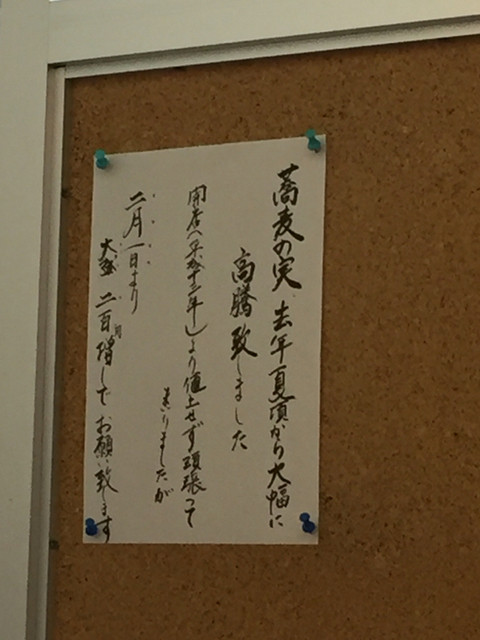 蕎麦の実 去年夏頃から大幅に
高騰致しました
開店(平成十二年)より値上せず頑張って
まいりましたが
二月一日より
大盛 二百円増しでお願い致します